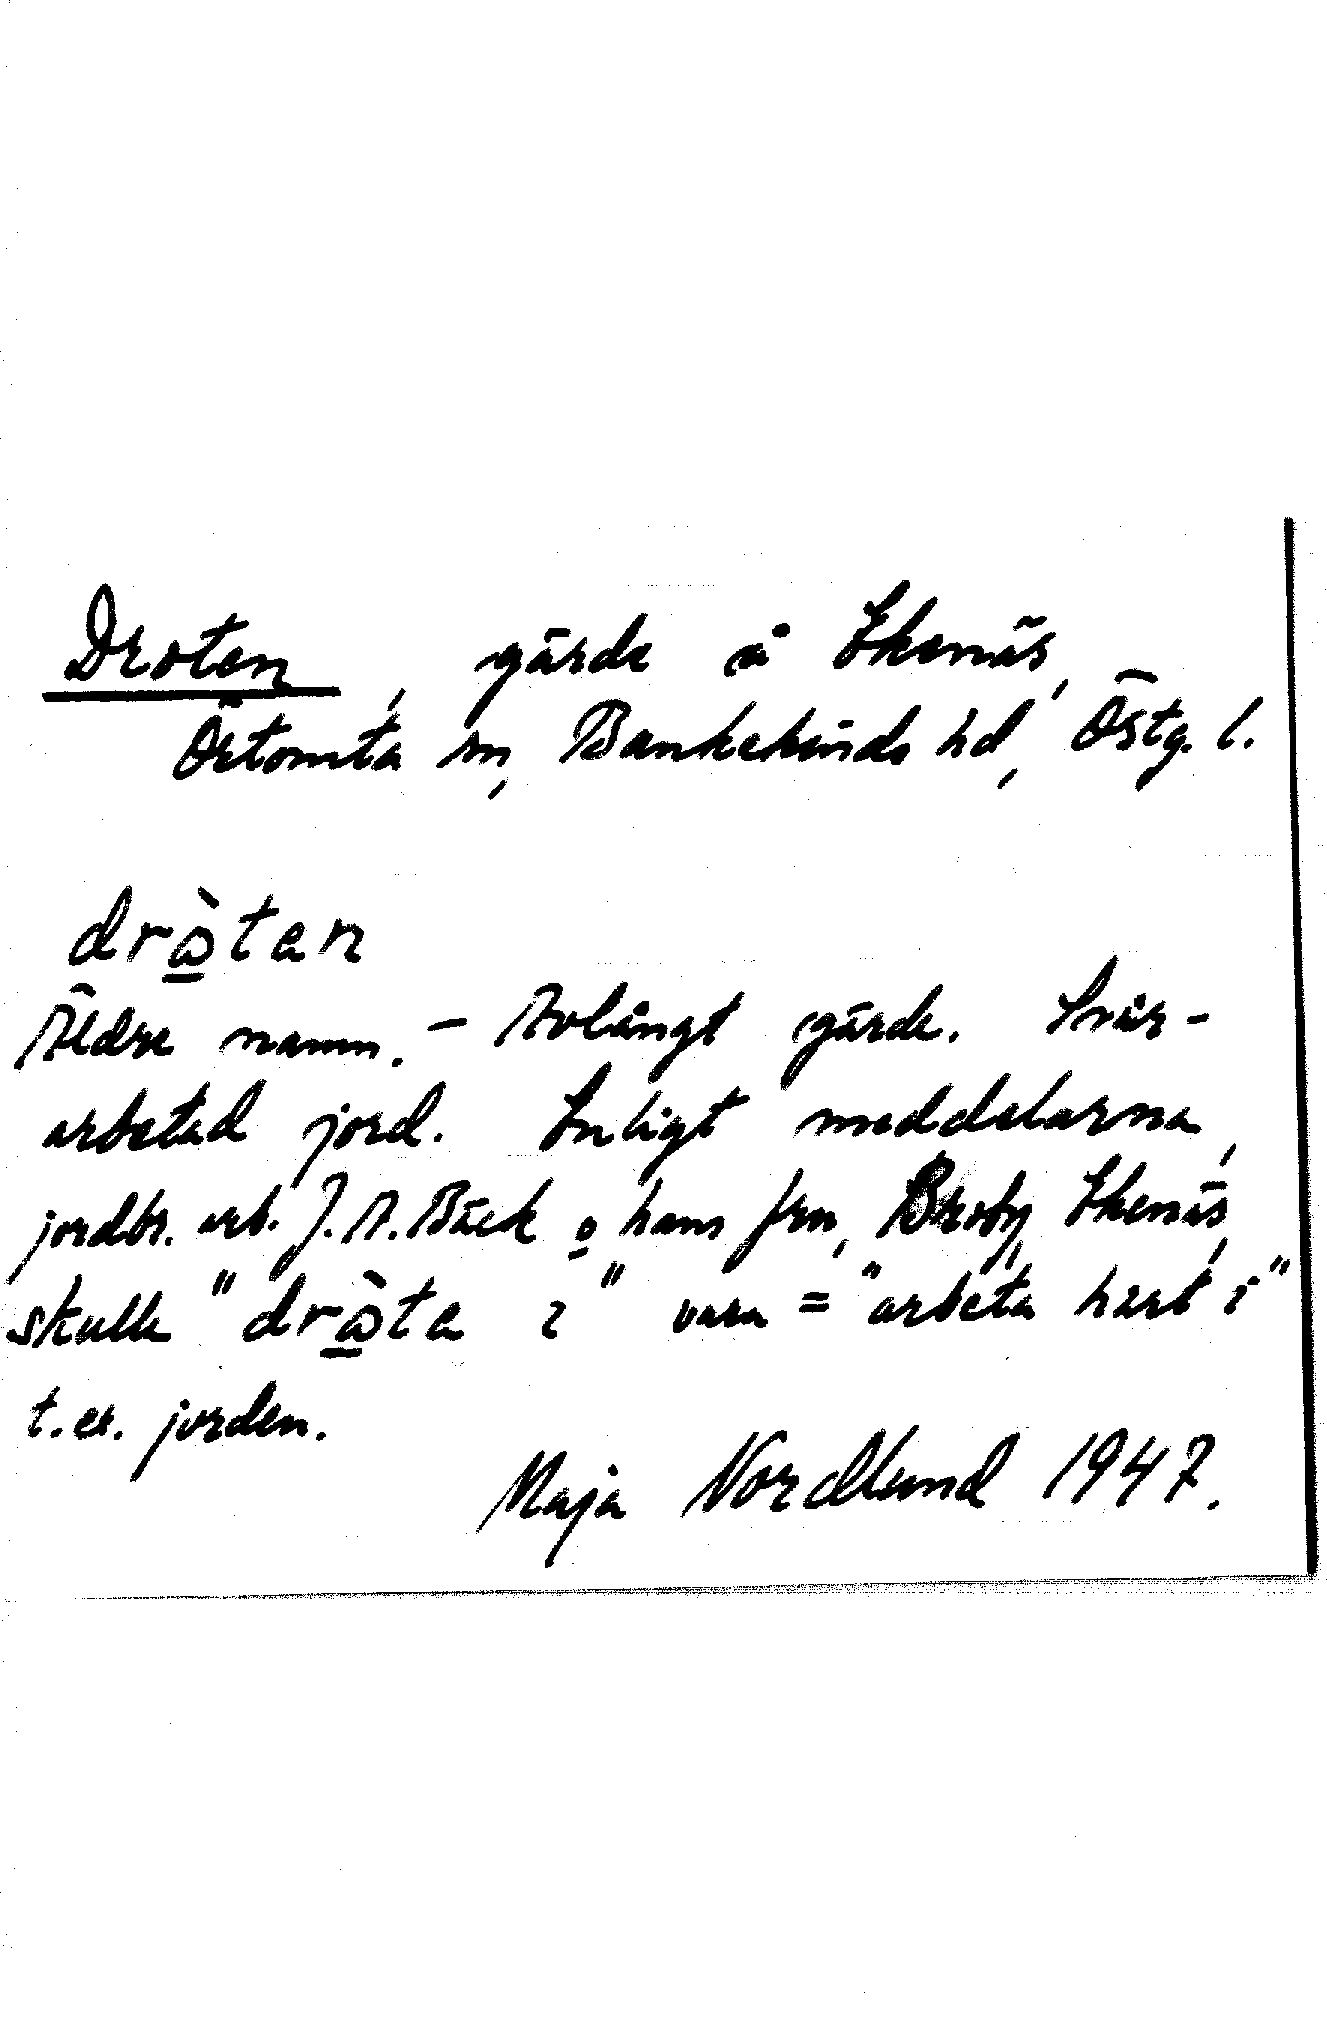 Droten, gärde å Ekenäs,
Örtomta sn, Bankekinds hd, Östg. l.
dròtan
Äldre namn. – Avlångt gärde. Svår-
arbetad jord. Enligt meddelarna,
jordbr. arb. J. A. Bäck o hans fru, Broby, Ekenäs,
skulle "dròta i" vara = "arbeta hårt i"
t. ex. jorden.
Maja Nordlund 1947.